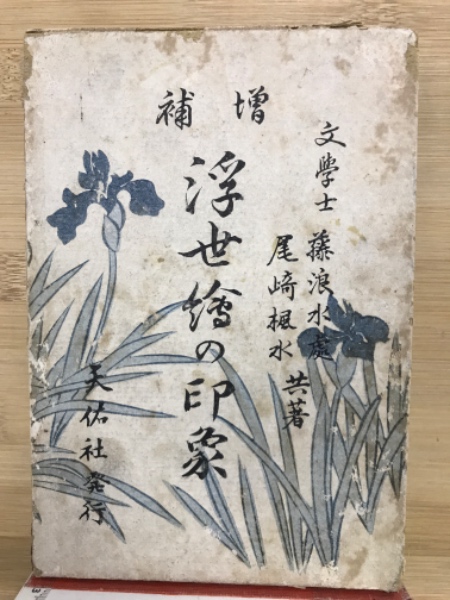 文學士 藤浪水處
尾崎楓水 共著
增補
浮世繪の印象
天佑社発行